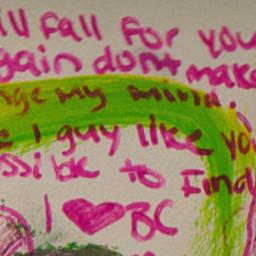 ill fall for you
gain dont make
nge my mind.
e I guy like yo
ssible to Find
I ♥ BC